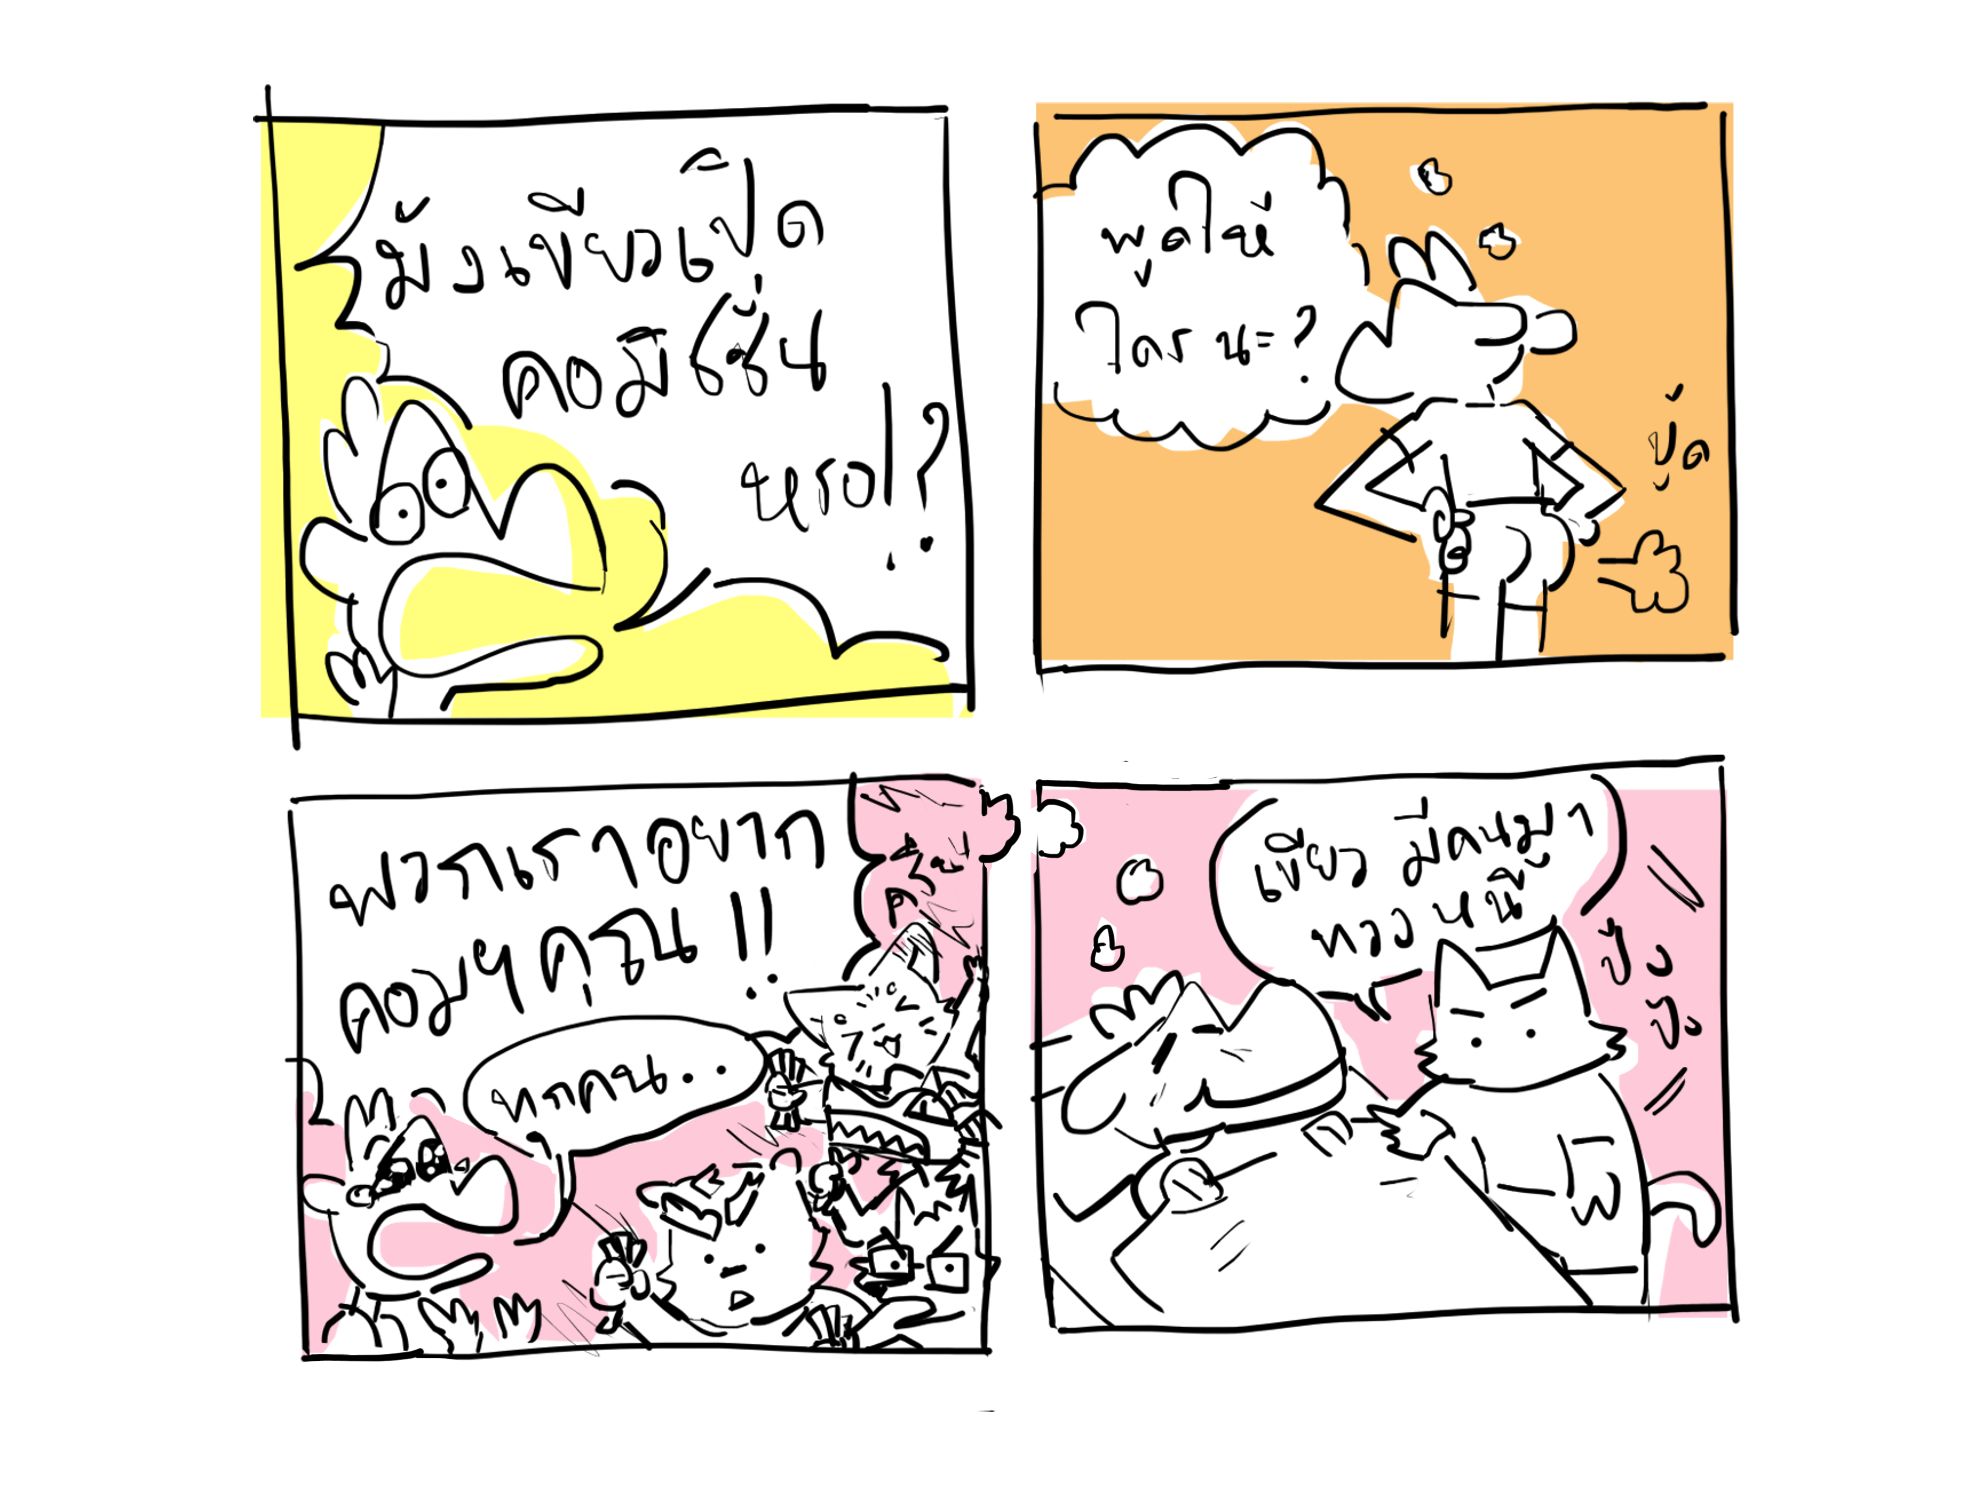 มังเขียวเปิด
คอมิชชั่น
หรอ!?
พูดให้
ใครนะ?
ปู้ด
พวกเราอยาก
คอมฯคุณ!!
ทุกคน..
เขียว มีคนมา
ทวงหนี้
ปัง
ปัง